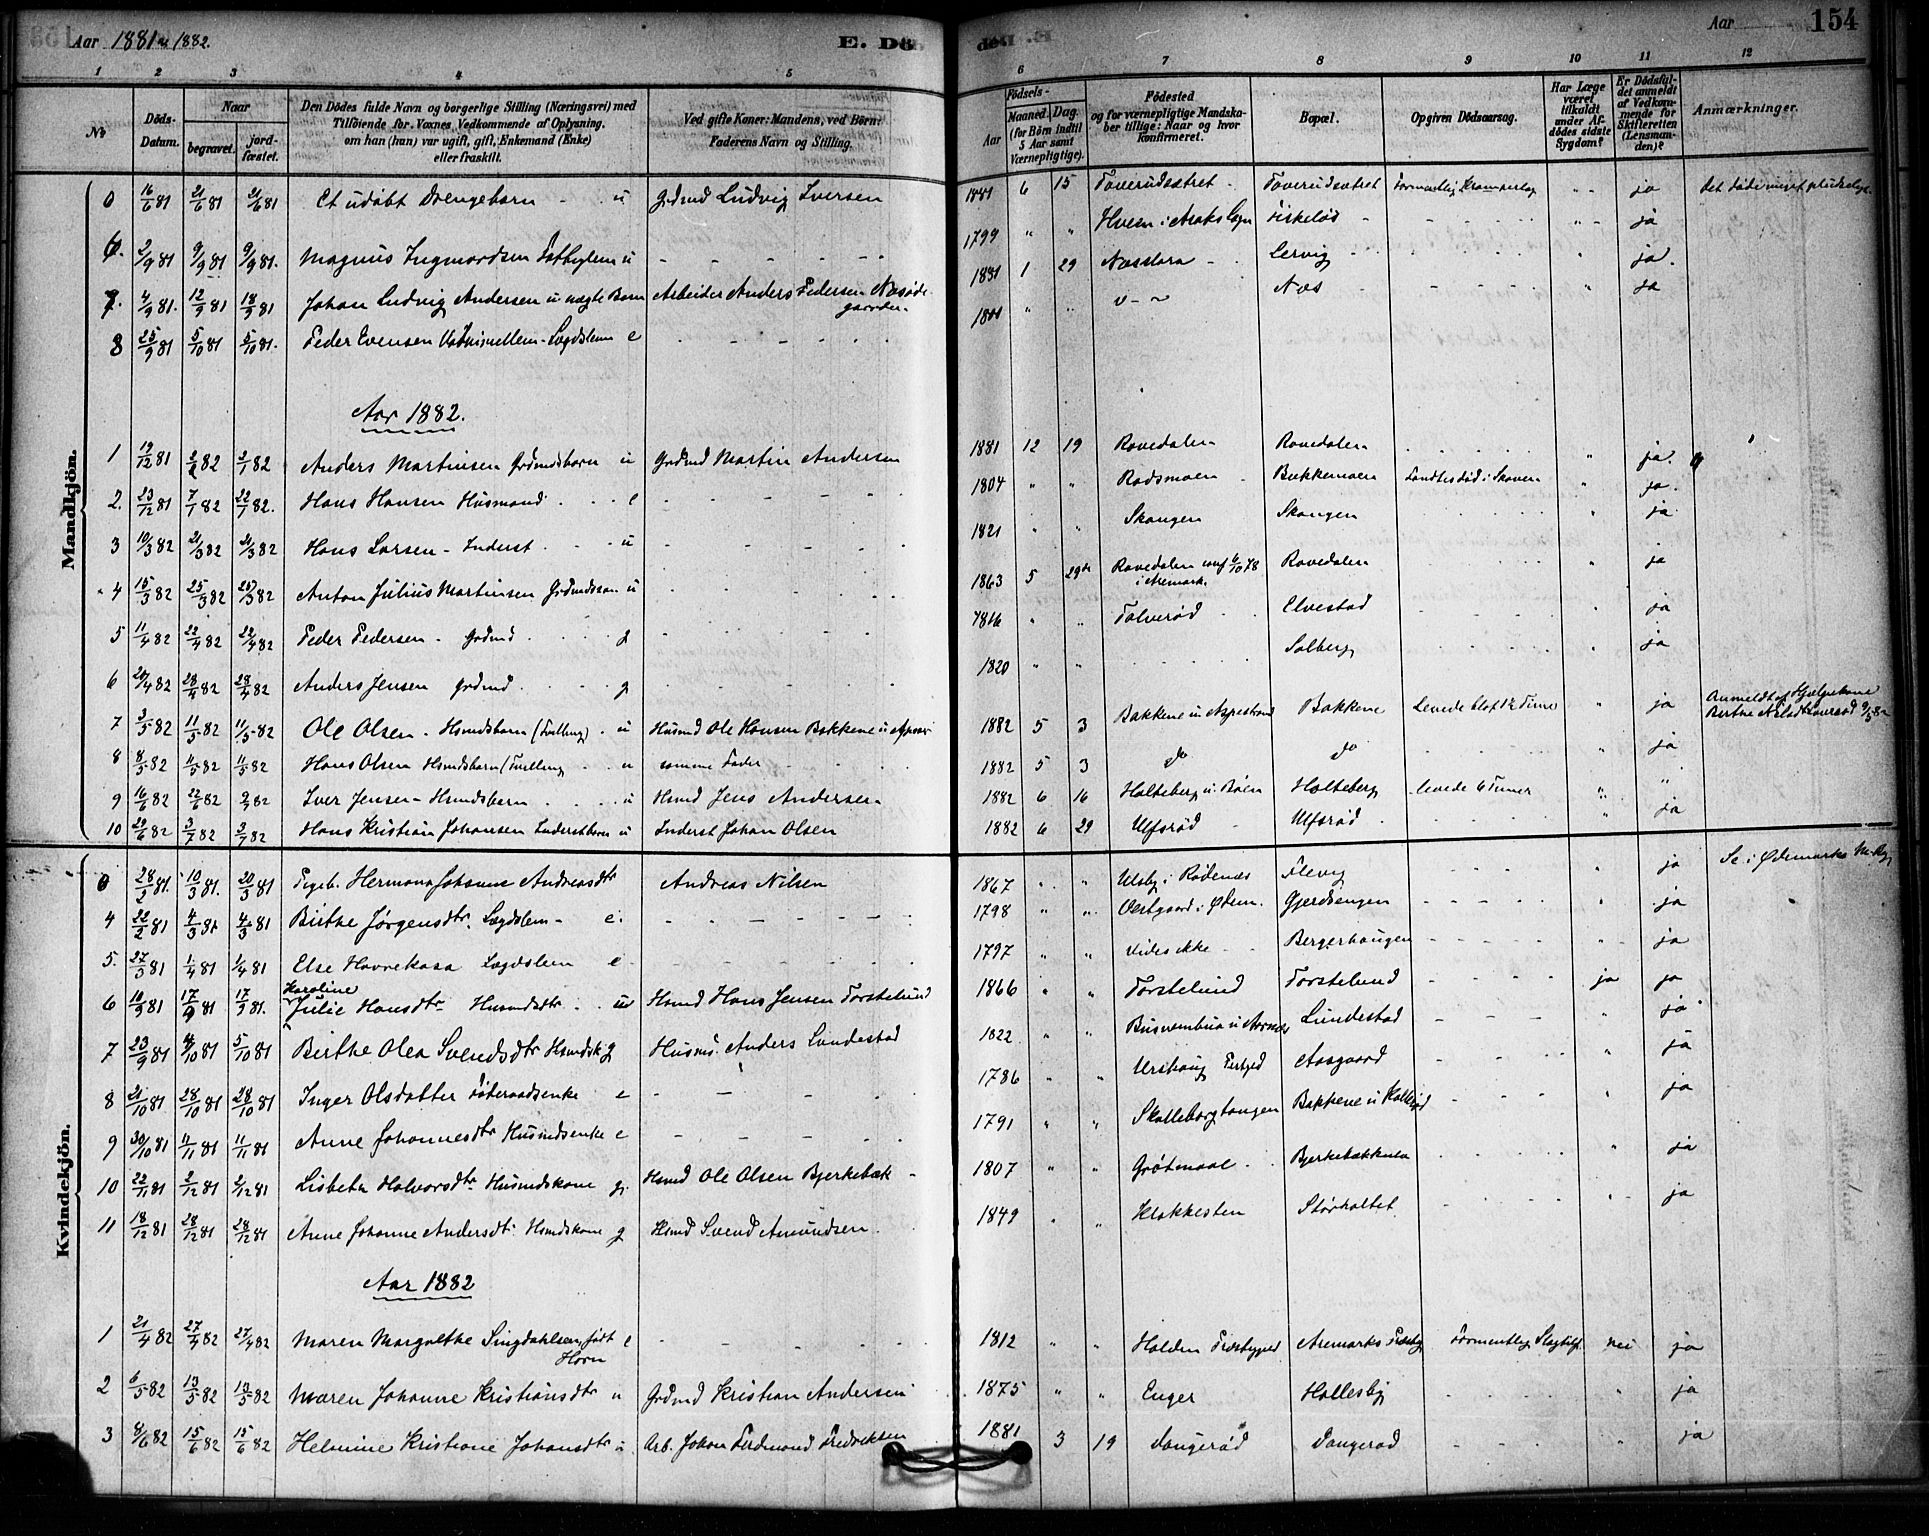 Aar 1881 & 1882. E. Dø Aar 154
1 2 3 4 5 6 7 8 9 10 11 12
No Döds-Datum. Naar begravet. jord-fæstet. Den Dödes fulde Navn og borgerlige Stilling (Næringsvei) med Tilföiende for Voxnes Vedkommende af Oplysning, om han (hun) var ugift, gift, Enkemand (Enke) eller fraskilt. Ved gifte Koner: Mandens, ved Börn: Faderens Navn og Stilling. Födsels- Aar Maaned. Dag. (for Börn indtil 5 Aar samt Værnepligtige). Födested og for værnepligtige Mandskaber tillige: Naar og hvor konfirmeret. Bopæl. Opgiven Dödsaarsag. Har Læge været tilkaldt under Afdödes sidste Sygdom? Er Dödsfaldet anmeldt af Vedkommende for Skifteretten (Lensmanden)? Anmærkninger.
Mandkjön.
0 16/6 81 21/6 81 21/6 81 Et udöbt Drengebarn - u Grdmd Ludvig Iversen 1881 6 15 Toverudsætret Toverudsætret formentlig Krampeslag " ja det döde meget pludselig
6. 2/9 81 9/9 81 9/9 81. Magnus Ingmordsen u 1799 " " Kirkeløs ja
7. 4/9 81. 12/9 81 18/9 81 Johan Ludvig Andersen u ægte Barn Arbeider Anders Pedersen 1881 1 29 Lervig ja.
8 25/9 81 5/10 81 5/10 81. Peder Evensen - Lægdslem e 1801 " " Næs ja
Aar 1882.
1 19/12 81 2/1 82 2/1 82 Anders Martinsen Grdmdsbarn u Grdmd Martin Andersen 1881 12 19 Rovedalen Rovedalen " ja.
2. 23/12 81 7/1 82 22/1 82. Hans Hansen Husmand e 1804 " " Rødsmoen Bakkemoen Fandtes død i Skoven " ja.
3 10/3 82 21/3 82 21/3 82 Hans Larsen - Inderst u 1821 " " Skougen Skougen " ja
4 15/3 82 25/3 82 25/3 82 Anton Julius Martinsen Grdmdssøn u 1863 5 29de Rovedalen conf 6/10 78 i Aremark. Rovedalen " ja
5 11/4 82 22/4 82 22/4 82 Peder Pedersen - Grdmd g 1816 " " Tolverød Elvestad " ja
6 20/4 82 28/4 82 28/4 82 Anders Jensen Grdmd g 1820 " " Solberg " ja
7 3/5 82 11/5 82 11/5 82 Ole Olsen - Hsmdsbarn (Tvilling) u Husmd Ole Hansen Bakkene 1882 5 3 Bakkene Bakkene Levede blot 1/2 Time " ja Anmeldt af Hjælpekone
8 8/5 82 11/5 82 11/5 82 Hans Olsen Hsmdsbarn (Tvilling u samme Fader 1882 5 3 do do " ja
9 16/6 82 22/6 82 2/7 82 Iver Jensen - Hsmdsbarn u Hsmd Jens Andersen 1882 6 16 Holteberg Holteberg levede 6 Timer " "
10 29/6 82 3/7 82 3/7 82 Hans Kristian Johansen Inderstbarn u Inderst Johan Olsen 1882 6 29 Ulfsrød Ulfsrød ja
Kvindekjön.
0 28/2 81. 10/3 81. 20/3 81 Hermana Johanne Andreasdtr Andreas Nilsen 1867 " " Ulsby i Rødenæs Flevig " ja Se i Ødemarks M. Bg.
4 22/2 81 4/3 81 4/3 81 Birthe Jørgensdtr. Lægdslem - e. 1798 " " Vestgaard i Ødem. Gjerdsengen " ja
5. 27/3 81 1/4 81 1/4 81 Else Havrekasa Lægdslem e 1797 " " Vides ikke Bergerhaugen " ja
6 10/9 81 17/9 81 17/9 81. Karoline Julie Hansdtr Husmdsdtr. u Hsmd Hans Jensen Torstelund 1866 " " Torstelund Torstelund ja ja
7 23/9 81 4/10 81 5/10 81 Birthe Olea Svendsdtr Hsmdsk g Husmd. Anders Lundestad 1822 " " Lundestad ja
8 21/10 81 28/10 81 28/10 81 Inger Olsdatter e 1786 " " Aasgaard " ja
9 30/10 81 11/11 81 11/11 81 Anne Johannesdtr Husmdsenke e 1791 " " Skolleborgtangen Bakkene " ja
10 22/11 81 2/12 81 2/12 81 Lisbeth Halvorsdtr Husmdskone g. Hsmd Ole Olsen Bjerkebæk 1807 " " Grøtmaal Bjerkebækken " ja
11 18/12 81 28/12 81 28/12 81 Anne Johanne Andersdtr Hsmdskone g Hsmd Svend Amundsen. 1849 " " Klokkesten Storholtet " ja
Aar 1882
1 21/4 82 27/4 82 27/4 82 Maren Margrethe Singdahlsen, født Horn e 1812 " " Halden Aremarks formentlig Slagtilf nei ja
2 6/5 82 13/5 82 13/5 82 Maren Johanne Kristiansdtr u Grdmd Kristian Andersen 1875 " " Enger Hallesby ja
3 8/6 82 15/6 82 15/6 82 Helmine Kristiane Johansdtr u Arb. Johan Ferdinand Fredriksen 1881 3 19 Daugerød Daugerød " ja